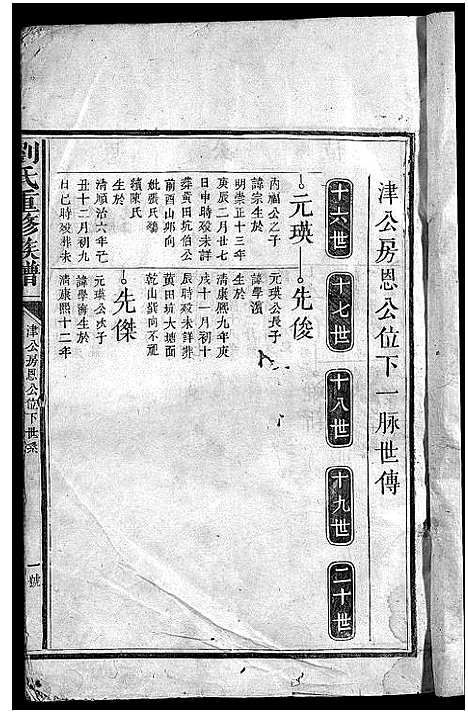 津公房恩公位下一脉世傳
十六世
十七世
十八世
十九世
二十世
元瑛
丙福公之子
諱宗生於
明崇正十三年
庚辰二月廿七
日申時歿未詳
葬黃田坑伯公
前酉山卯向
妣張氏
續陳氏
生於
清順治六年己
丑十二月初九
日巳時歿葬未
先俊
元瑛公長子
諱學濱
生於
清康熙九年庚
戌十一月初十
辰時歿未詳葬
黃田坑大塘面
乾山巽向不冠
先傑
元瑛公次子
諱學濟生於
清康熙十二年
劉氏重修族譜
津公房恩公位下世系
一號